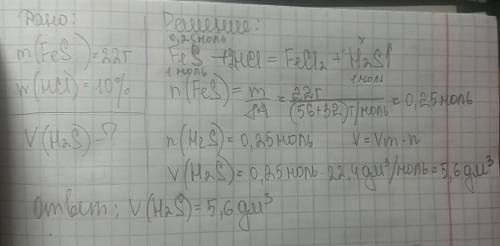 Дано:
m(FeS)=22г
w(HCl)=10%
V(H2S)-?
Решение:
0,25моль x
FeS + 2HCl = FeCl2 + H2S↑
1моль 1моль
n(FeS)=m/M=22г/(56+32)г/моль=0,25моль
n(H2S)=0,25моль V=Vm·n
V(H2S)=0,25моль·22,4дм³/моль=5,6дм³
ответ: V(H2S)=5,6дм³